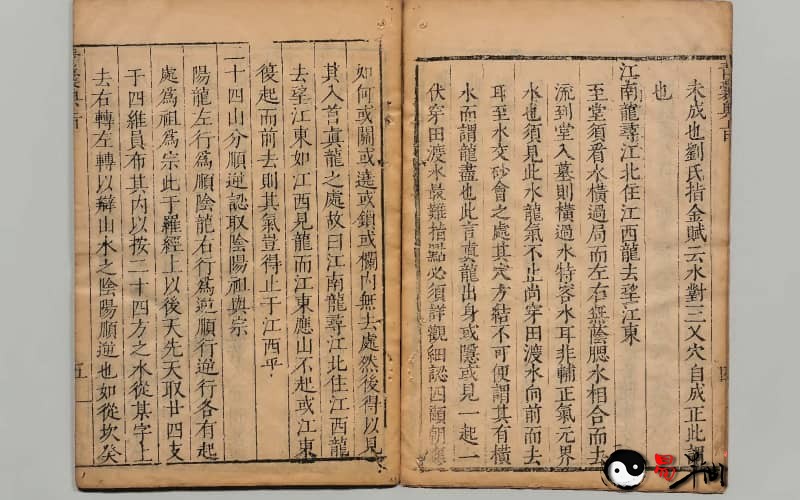 未成也劉氏指金賦云水對三叉穴自成正此謂
也
江南龍尋江北住江西龍去望江東
至堂須看水橫過局而左右無蔭腮水相合而去
流到堂入墓則橫過水特客水耳非輔正氣元界
水也須見此水龍氣不止尚穿田渡水向前而去
耳至水交砂會之處其穴方結不可便謂其有橫
水而謂龍盡也此言真龍出身或隱或見一起一
伏穿田渡水最難指點必須詳觀細認四顧朝
四
如何或關或遶或鎖或欄內無去處然後得以見
其入首真龍之處故曰江南龍尋江北住江西龍
去望江東如江西見龍而江東應山不起或江東
復起而前去則其氣豈得止于江西乎
二十四山分順逆認取陰陽祖與宗
陽龍左行為順陰龍右行為逆順行逆行各有起
處為祖為宗此于羅經上以後天先天取廿四支
干四維員布其內以按二十四方之水從某字上
去右轉左轉以辯山水之陰陽順逆也如從坎癸
五